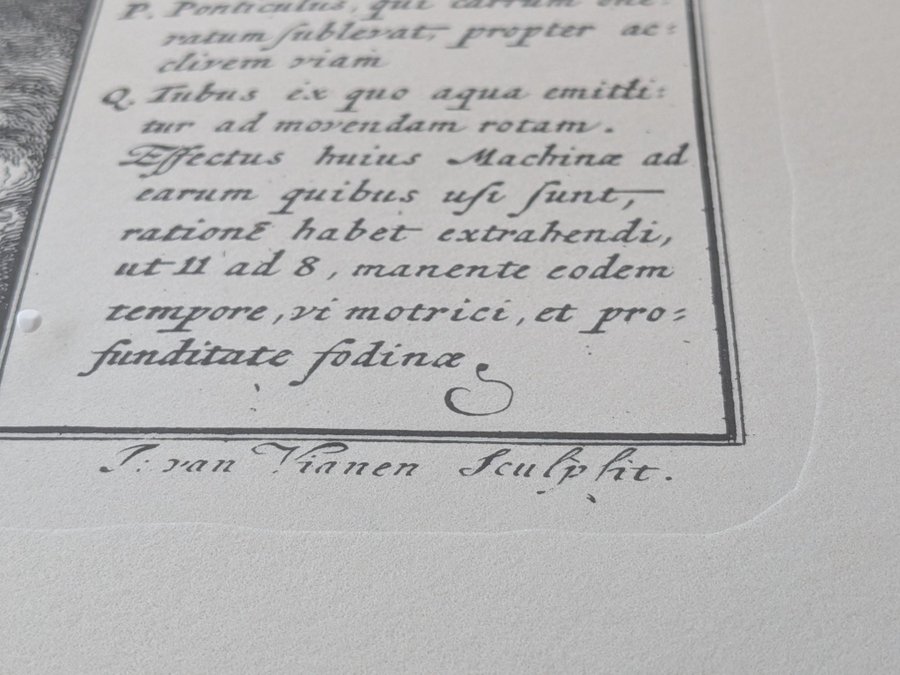 P. Ponticulus, qui carrum one:
ratum ſublevat, propter ac:
clivem viam
Q. Tubus ex quo aqua emitti:
tur ad movendam rotam.
Effectus huius Machinæ ad
earum quibus uſi ſunt,
rationē habet extrahendi,
ut 11 ad 8, manente eodem
tempore, vi motrici, et pro:
funditate fodinæ
J: van Vianen Sculpſit.